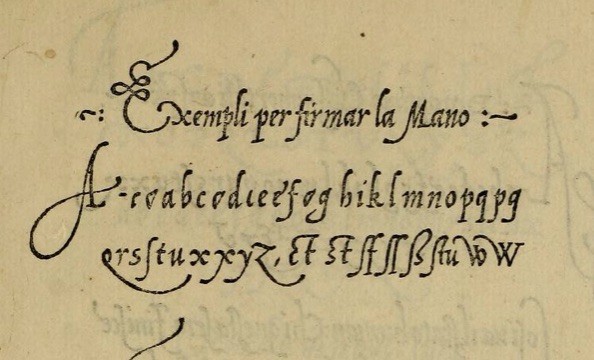 ~: Exempli per firmar la Mano :~
A-r ɵ a b c ɵ d c e e f ɵ g h i k l m n o p q p g
ɵ r s ſ t u x x y z, ct st ſf ſſ ß ſtu w W